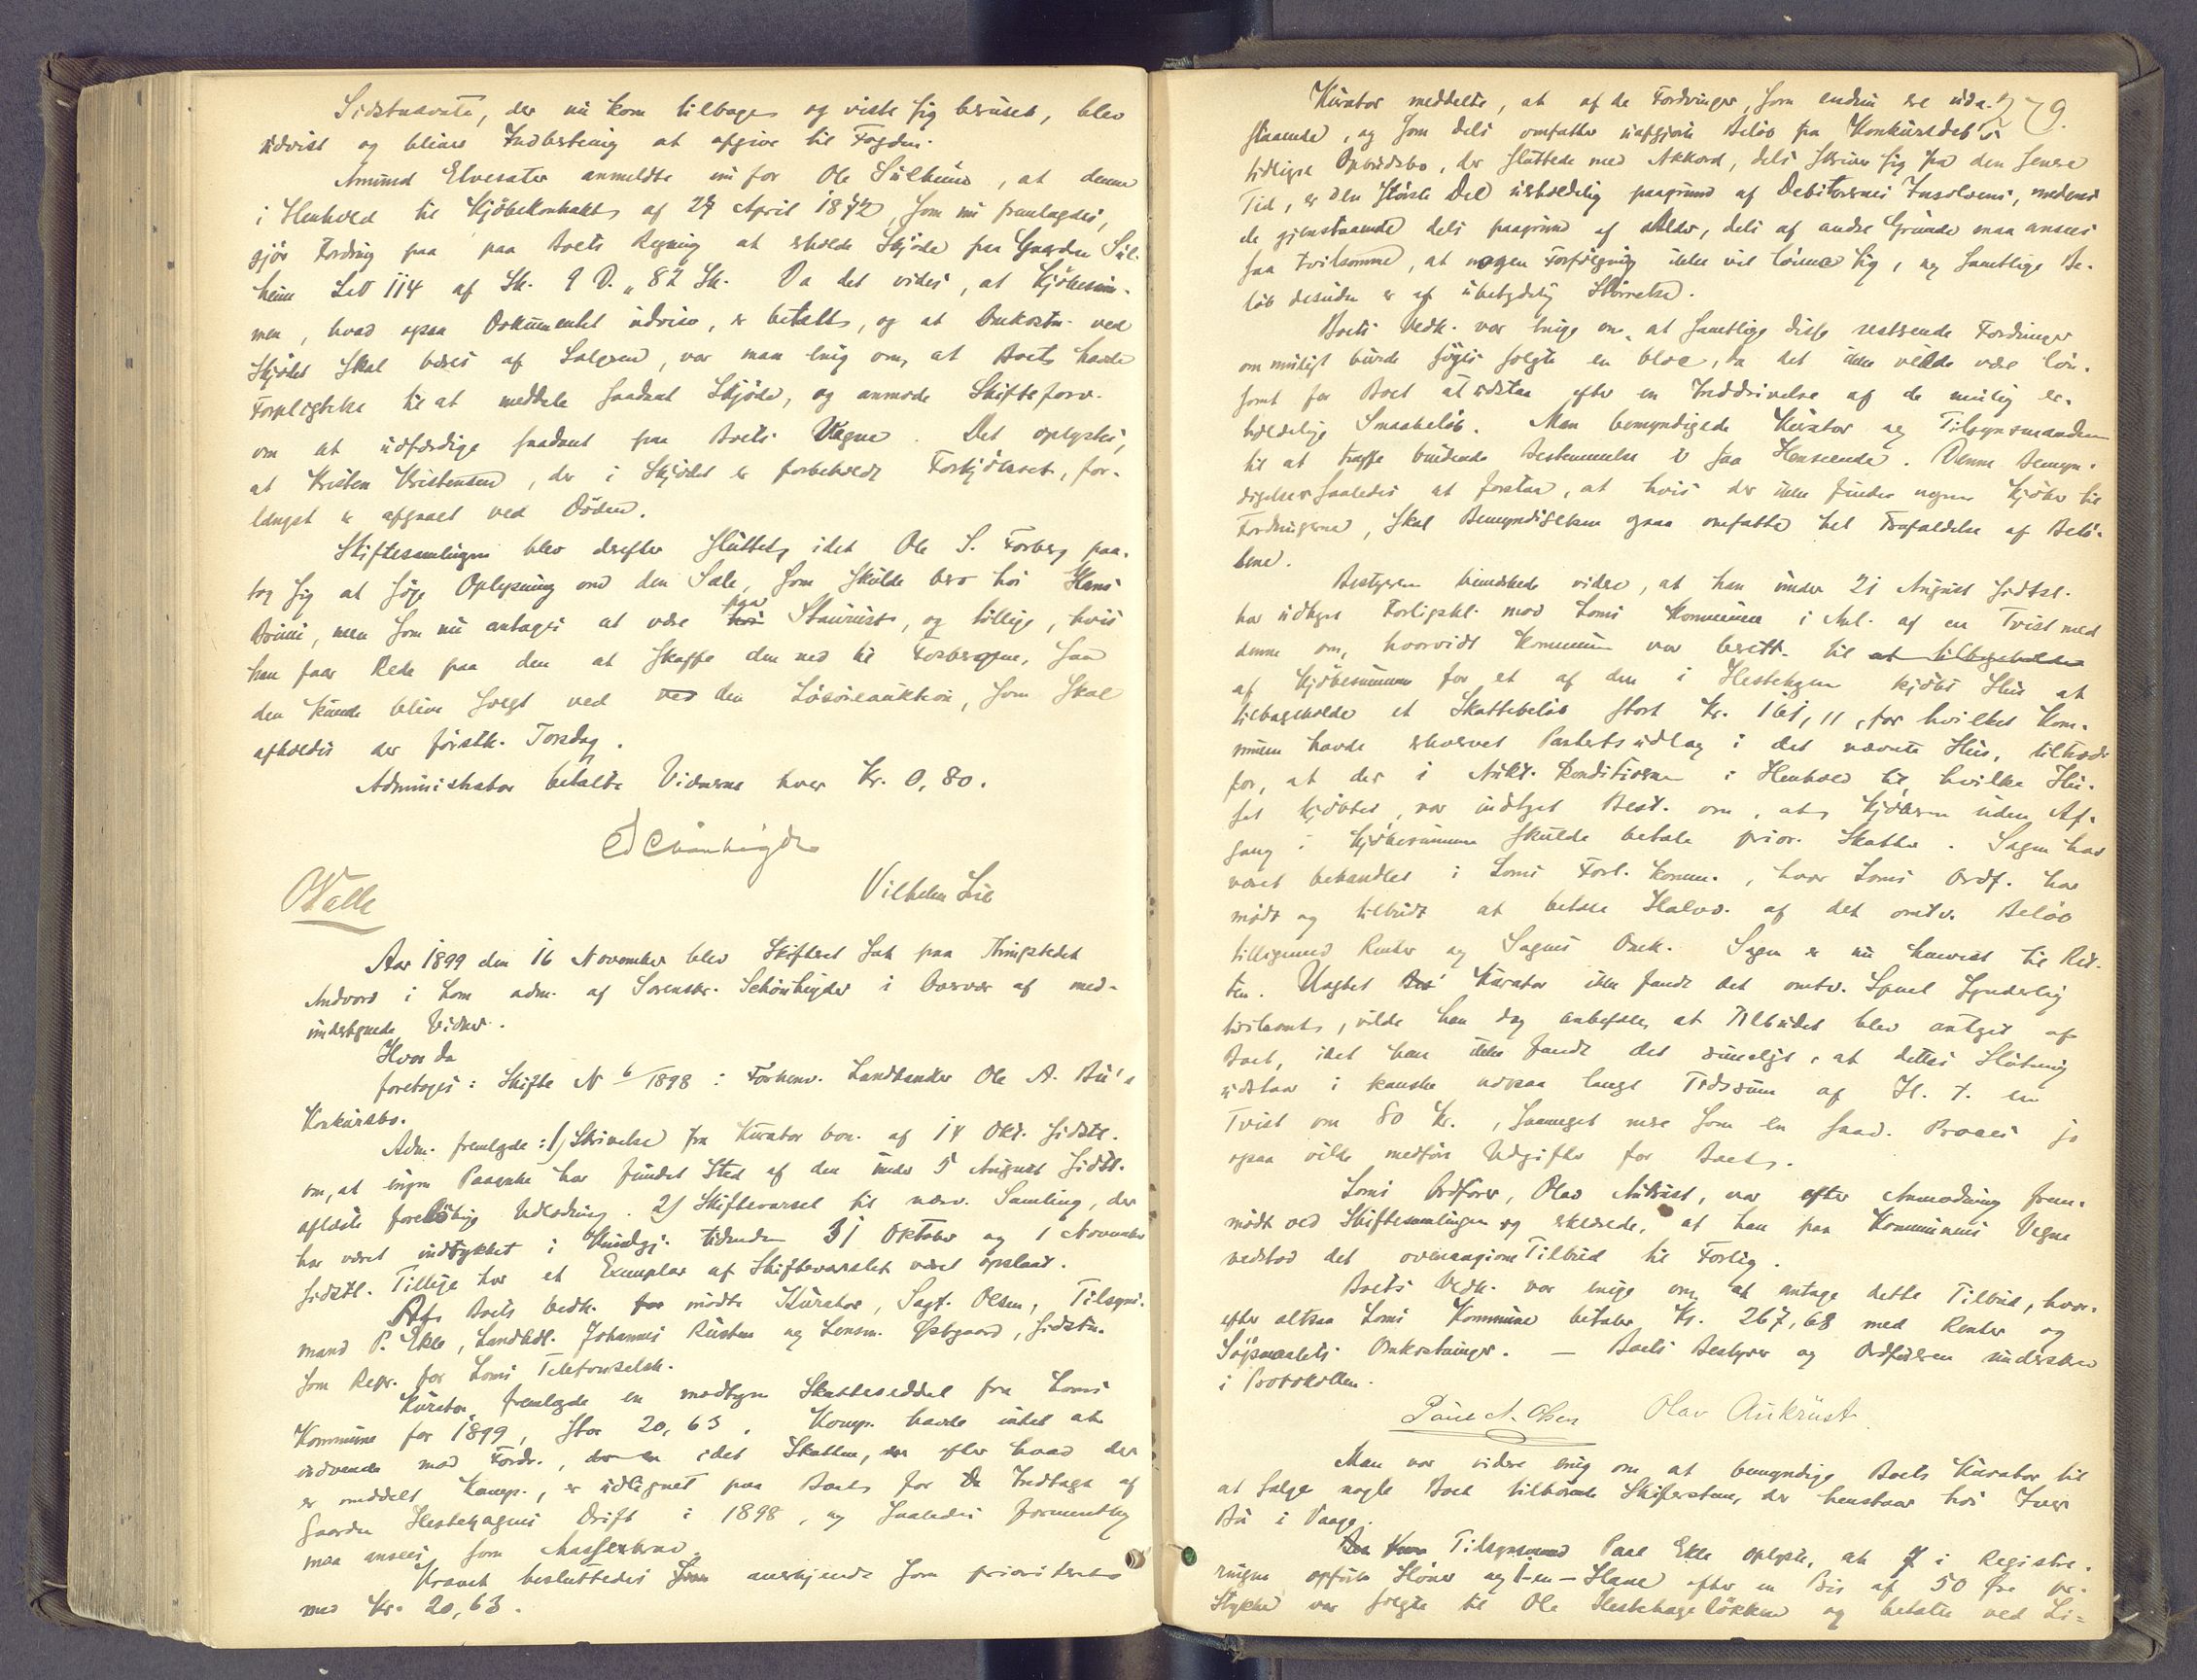 Sidstnævnte, der nu kom tilbage og viste sig beruset, blev
udvist og blines Indberetning at afgive til Fogden.
Amund Elvesater anmeldte nu for Ole Sulheim, at denne
i Henhold til Kjöbekontrakt af 27 April 1872, som nu fremlagdes,
gjör Fordring paa paa Boets Regning at erholde Skjöde paa Gaarden Sul-
heim LNo 114 af Sk. 9 D. „ 82 Sk. Da det vides, at Kjöbesum-
men, hvad ogsaa Dokumentet udviser, er betalt, og at Omkostn. ved
Skjödet skal bæres af Sælgeren, var man enig om, at Boet havde
Forpligtelse til at meddele saadant Skjöde, og anmode Skifteforv.
om at udfærdige saadant paa Boets Vegne. Det oplystes,
at Kristen Kristensen, der i Skjödet er forbeholdt Forkjöbsret, for-
længst er afgaaet ved Döden.
Skiftesamlingen blev derefter sluttet, idet Ole S. Forberg paa-
tog sig at söge Oplysning om den Sæle, som skulde bero hos Hans
Brimi, men som nu antages at være hos paa Staurust, og tillige, hvis
han faar Rede paa den at skaffe den ned til Forbergene, saa
den kunde blive solgt ved ved den Lösöreauktion, som skal
afholdes der förstk. Torsdag.
Administrator betalte Vidnerne hver Kr. 0,80.
Schönheyder
OValle Vilhelm Lie
Aar 1899 den 16 November blev Skifteret sat paa Thingstedet
Andvord i Lom adm. af Sorenskr. Schönheyder i Overvær af med-
undertegnede Vidner.
Hvor da
foretoges: Skifte N 6/1898: Forhenv. Landhandler Ole A. Bu's
Konkursbo.
Adm. fremlagde: 1) Skrivelse fra Kurator bon. af 14 Okt. sidstl.
om, at ingen Paaanke har fundet Sted af den under 5 August sidstl.
aflæste forelöbige Udlodning. 2) Skiftevarsel til nærv. Samling, der
har været indrykket i Kundgj. tidenden 31 Oktober og 1 November
sidstl. Tillige har et Exemplar af Skiftevarslet været opslaaet.
Af Boets Vedk. for mödte Kurator, Sagf. Olsen, Tilsyns-
mand P. Ekle, Landhdl. Johannes Rusten og Lensm. Östgaard, sidstn.
som Repr. for Loms Telefonselsk.
Kurator fremlagde en modtagen Skatteseddel fra Loms
Kommune for 1899, stor 20,63. Komp. havde intet at
indvende mod Fordr., der er idet Skatten, der efter hvad der
er meddelt Komp., er udlignet paa Boet for de Indtægt af
Gaarden Hestehagens Drift i 1898, og saaledes formentlig
maa ansees som Massekrav.
Kravet besluttedes som anerkjendt som prioriteret
med Kr. 20,63.
279.
Kurator meddelte, at af de Fordringer, som endnu ere uda-
staaende, og som dels omfatter uafgjorte Belöb fra Konkursdeb's
tidligere Opbudsbo, der sluttede med Akkord, dels skriver sig fra den senere
Tid, er den störste Del uerholdelig paagrund af Debitorernes Insolvens, medens
de gjenstaaende dels paagrund af Ælde, dels af andre Grunde maa ansees
saa tvilsomme, at nogen Forfölgning ikke vil lönne sig, og samtlige Be-
löb desuden er af ubetydelig Störrelse.
Boets Vedk. var enige om, at samtlige disse resterende Fordringer
om muligt burde söges solgte en bloc, da det ikke vilde være lön-
somt for Boet at udstaa efter en Inddrivelse af de mulig er-
holdelige Smaabelöb. Man bemyndigede Kurator og Tilsynsmanden
til at træffe bindende Bestemmelse i saa Henseende. Denne Bemyn-
digelse saaledes at forstaa, at hvis der ikke findes nogen Kjöber til
Fordringerne, skal Bemyndigelsen ogsaa omfatte hel Frafaldelse af Belö-
bene.
Bestyreren bemærkede videre, at han under 21 August sidstl.
har udtaget Forligskl. mod Loms Kommune i Anl. af en Tvist med
denne om, hvorvidt Kommunen var berett. til at tilbageholde
af Kjöbesummen for et af den i Hestehagen kjöbt Hus at
tilbageholde et Skattebelöb stort Kr. 161,11, for hvilket Kom-
munen havde erhvervet Panterets udlæg i det nævnte Hus, tiltrods
for, at der i Aukt. Konditionerne i Henhold til hvilke Hu-
set kjöbtes, var indtaget Best. om, at Kjöberen uden Af-
gang i Kjöbesummen skulde betale prior. Skatter. Sagen har
været behandlet i Loms Forl. Komm., hvor Loms Ordf. har
mödt og tilbudt at betale Halvd. af det omtv. Belöb
tilligemed Renter og Sagens Omk. Sagen er nu henvist til Ret-
ten. Uagtet Bo Kurator ikke fandt det omtv. Spm'l synderlig
tvilsomt, vilde han dog anbefale, at Tilbudet blev antaget af
Boet, idet han ikke fandt det rimeligt, at dettes Slutning
udstaar i kanske ogsaa langt Tidsrum af H. t. en
Tvist om 80 Kr., saameget mere som en saad. Proces jo
ogsaa vilde medföre Udgifter for Boet.
Loms Ordförer, Olav Aukrust, var efter Anmodning frem-
mödt ved Skiftesamlingen og erklærede, at han paa Kommunens Vegne
vedstod det ovenangivne Tilbud til Forlig.
Boets Vedk. var enige om at antage dette Tilbud, hvor-
efter altsaa Loms Kommune betaler Kr. 267,68 med Renter og
Sögsmaalets Omkostninger. — Boets Bestyrer og Ordföreren underskrev
i Protokollen.
Paul A. Olsen Olav Aukrust
Man var videre enig om at bemyndige Boets Kurator til
at sælge nogle Boet tilhörende Skifersten, der henstaar hos Iver
Bu i Vaage.
Tilsynsmand Paal Ekle oplyste, at 7 i Registre-
ringen opförte Höner og 1 – en – Hane efter en Pris af 50 Öre pr.
Stykke var solgte til Ole Hestehagelökken og betalte ved Li-